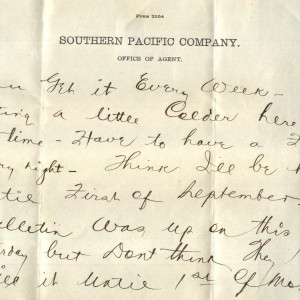 Form 2584
SOUTHERN PACIFIC COMPANY.
OFFICE OF AGENT.
Get it Every Week —
a little Colder here
time — Have to have a
night — Think I'll be
First of September
was up on this
but Dont think They
it Untie 1st Of